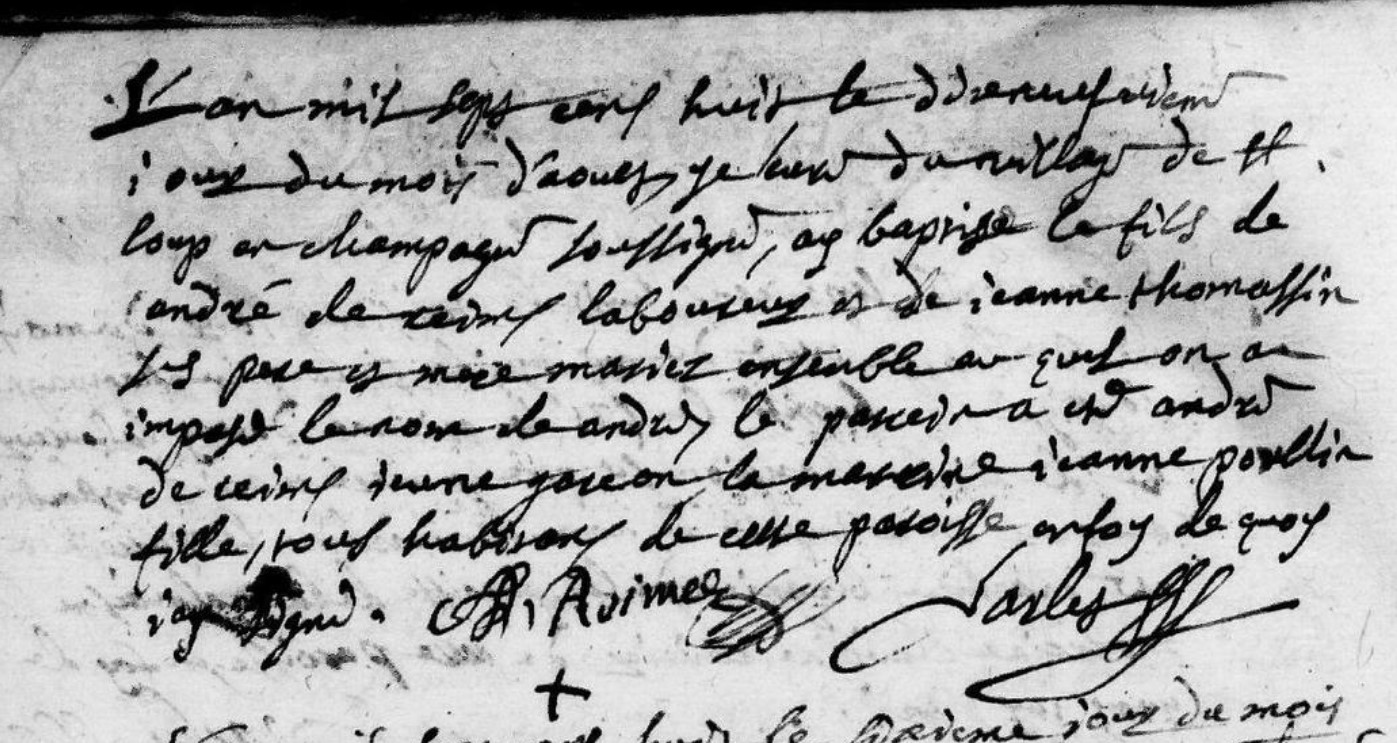 L'an mil sept cens huit le dixneufvieme
iour du mois d'aoust, je curé du village de St.
loup en champagne soussigné, ay baptisé le fils de
andré de reims laboureur et de ieanne thomassin
ses pere et mere mariez ensemble au quel on a
imposé le nom de andré, le parein a esté andré
de reims ieune garcon la mareine ieanne poullin
fille, tous habitans de cette paroisse en foy de quoy
iay signé.
iour du mois